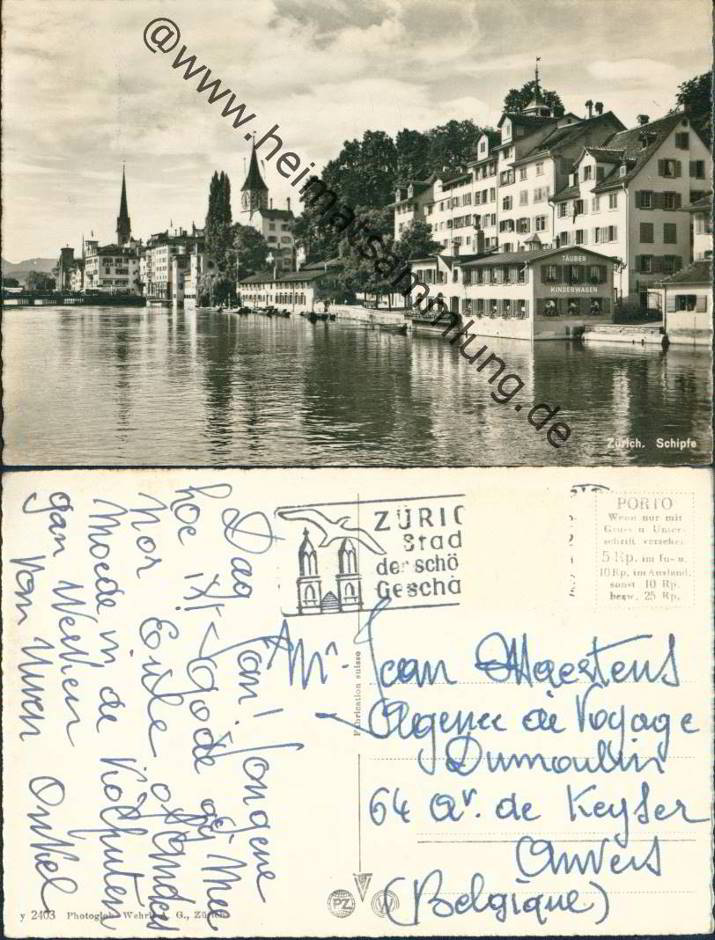 @www.heimatsammlung.de
TÄUBER
KINDERWAGEN
Zürich. Schipfe
ZÜRIC
Stad
der schö
Geschä
PORTO
Wenn nur mit
Gruss u Unter-
schrift versehen
5 Rp. im In- u.
10 Rp. im Ausland,
sonst 10 Rp.
bezw. 25 Rp.
Dag Jongene
hoe
Mee
Nor Eule
Moede in de
gan Werken
Vom Onkel
Fabrication suisse
Mr. Jean Maertens
Agence de Voyage
Dumoulin
64 Av. de Keyser
Anvers
(Belgique)
PZ
W
y 2403 Photoglob-Wehrli A. G., Zürich